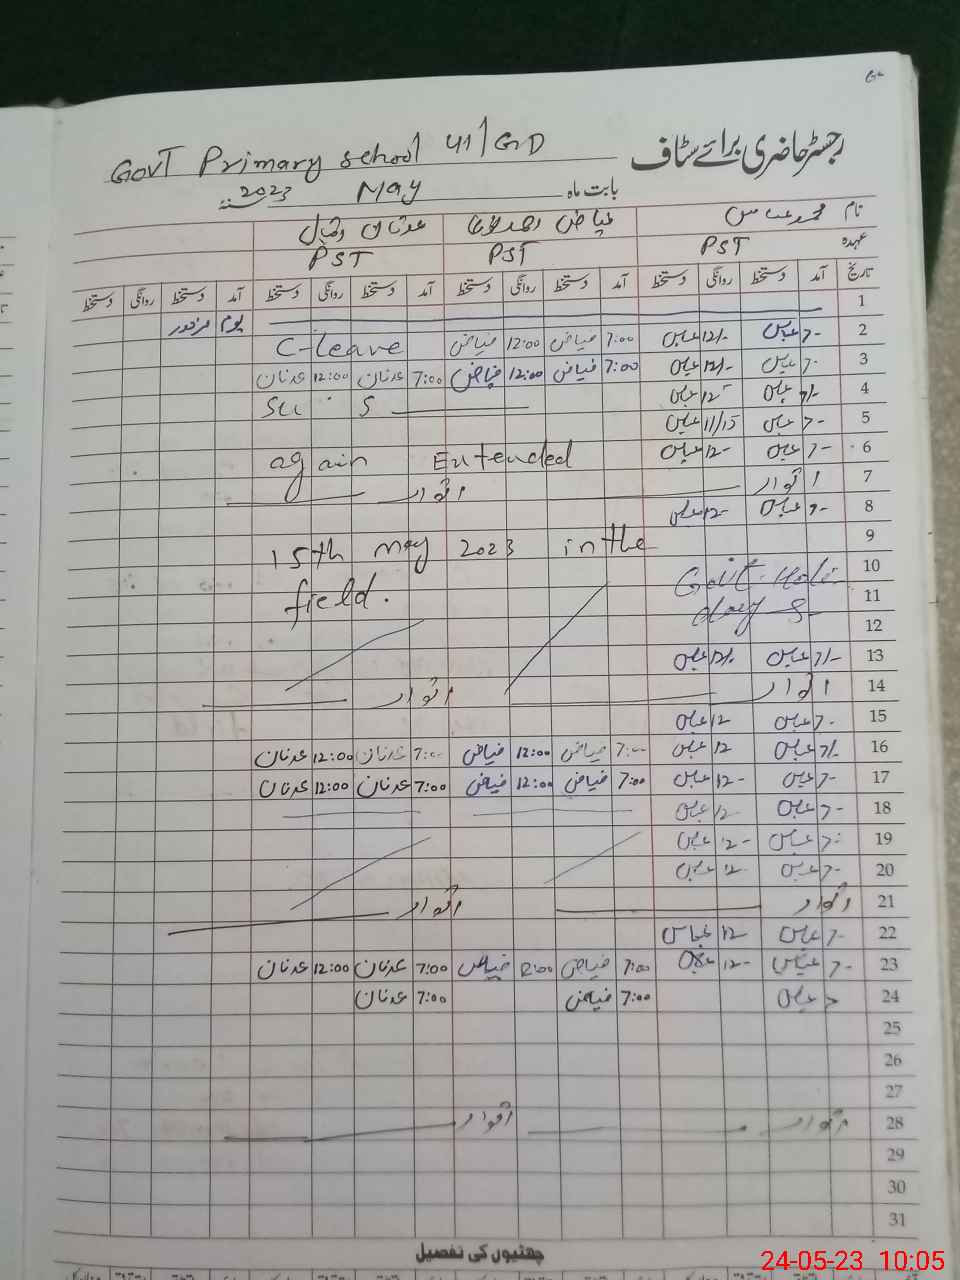 GovT Primary school 41/GD رجسٹر حاضری برائے سٹاف
بابت ماہ May 2023
نام محمد عباس فیاض عدنان
عہدہ PST PST PST
تاریخ آمد دستخط روانگی دستخط آمد دستخط روانگی دستخط آمد دستخط روانگی دستخط آمد دستخط روانگی دستخط
1 یوم مزدور
2 7- عباس 12/- عباس 7:00 فیاض 12:00 فیاض C-leave
3 7- عباس 12/- عباس 7:00 فیاض 12:00 فیاض 7:00 عدنان 12:00 عدنان
4 7/- عباس 12 عباس
5 7- عباس 11/15 عباس
6 7- عباس 12- عباس again Extended
7 اتوار اتوار
8 7- عباس 12- عباس
9 15th may 2023 in the
10 Govt. Holi
11 field. days
12
13 7/- عباس 12/- عباس
14 اتوار اتوار
15 7- عباس 12 عباس
16 7/- عباس 12 عباس 7:00 فیاض 12:00 فیاض 7:00 عدنان 12:00 عدنان
17 7- عباس 12- عباس 7:00 فیاض 12:00 فیاض 7:00 عدنان 12:00 عدنان
18 7- عباس 12 عباس
19 7- عباس 12- عباس
20 7- عباس 12 عباس
21 اتوار اتوار
22 7- عباس 12 عباس
23 7- عباس 12- عباس 7:00 فیاض 12:00 فیاض 7:00 عدنان 12:00 عدنان
24 7 عباس 7:00 فیاض 7:00 عدنان
25
26
27
28 اتوار اتوار
29
30
31
چھٹیوں کی تفصیل
24-05-23 10:05